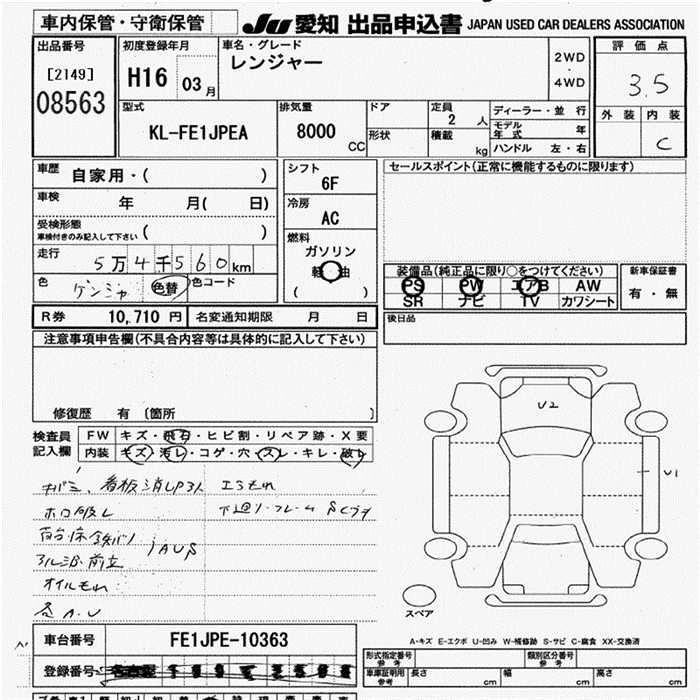 車内保管・守衛保管
JU 愛知 出品申込書 JAPAN USED CAR DEALERS ASSOCIATION
出品番号
[2149]
08563
初度登録年月
H16 03月
車名・グレード
レンジャー
2WD
・
4WD
評価点
3.5
外装 内装
C
型式
KL-FE1JPEA
排気量
8000
CC
ドア
形状
定員
2 人
積載
kg
ディーラー・並行
モデル年式 年
ハンドル 左・右
車歴 自家用・( )
車検 年 月( 日)
受検形態
車検付きのみ記入して下さい ( )
走行 5万4千560km
色 ゲンシャ 色替 色コード
シフト
6F
冷房
AC
燃料
ガソリン
軽油
( )
セールスポイント(正常に機能するものに限ります)
装備品(純正品に限り○をつけてください)
PS PW エアB AW
SR ナビ TV カワシート
新車保証書
有・無
R券 10,710 円 名変通知期限 月 日
後日品
注意事項申告欄(不具合内容等は具体的に記入して下さい)
修復歴 有 〔箇所 〕
検査員
記入欄
FW キズ・飛石・ヒビ割・リペア跡・X要
内装 キズ・汚レ・コゲ・穴・スレ・キレ・破レ
エアもれ
オイルもれ
各A.U
U2
U1
スペア
A-キズ E-エクボ U-凹み W-補修跡 S-サビ C-腐食 XX-交換済
車台番号 FE1JPE-10363
登録番号
型式指定番号
参考
類別区分番号
参考
車庫証明用
参考
長さ cm 幅 cm 高さ cm